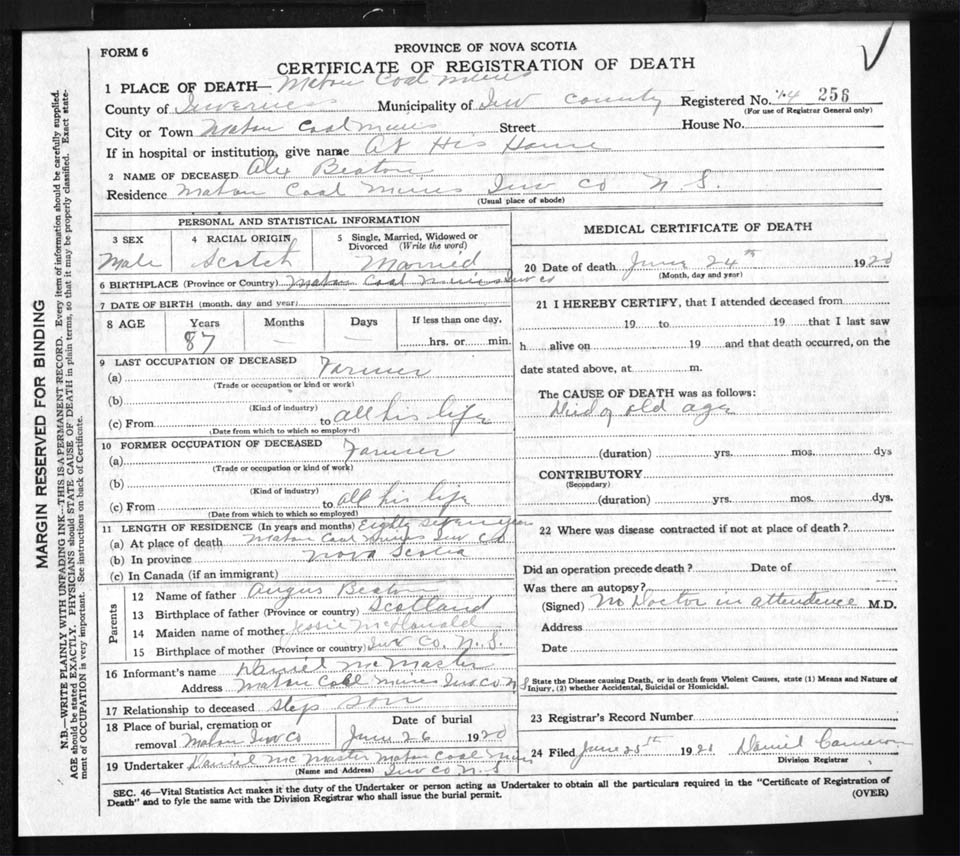 FORM 6
PROVINCE OF NOVA SCOTIA
CERTIFICATE OF REGISTRATION OF DEATH
1 PLACE OF DEATH— Mabou Coal Mines
County of Inverness Municipality of Inv County Registered No. 258
(For use of Registrar General only)
City or Town Mabou Coal Mines Street House No.
If in hospital or institution, give name At His Home
2 NAME OF DECEASED Alex Beaton
Residence Mabou Coal Mines Inv Co N. S.
(Usual place of abode)
PERSONAL AND STATISTICAL INFORMATION
3 SEX Male
4 RACIAL ORIGIN Scotch
5 Single, Married, Widowed or Divorced (Write the word) Married
6 BIRTHPLACE (Province or Country) Mabou Coal Mines Inv Co
7 DATE OF BIRTH (month, day and year)
8 AGE Years Months Days If less than one day.
87 — — hrs. or min.
9 LAST OCCUPATION OF DECEASED
(a) Farmer
(Trade or occupation or kind or work)
(b)
(Kind of industry)
(c) From to all his life
(Date from which to which so employed)
10 FORMER OCCUPATION OF DECEASED
(a) Farmer
(Trade or occupation or kind of work)
(b)
(Kind of industry)
(c) From to all his life
(Date from which to which so employed)
11 LENGTH OF RESIDENCE (In years and months) Eighty seven years
(a) At place of death Mabou Coal Mines Inv Co
(b) In province Nova Scotia
(c) In Canada (if an immigrant)
Parents
12 Name of father Angus Beaton
13 Birthplace of father (Province or country) Scotland
14 Maiden name of mother Jessie McDonald
15 Birthplace of mother (Province or country) Inv Co. N. S.
16 Informant's name Daniel McMaster
Address Mabou Coal Mines Inv. Co. N S
17 Relationship to deceased Step son
18 Place of burial, cremation or removal Mabou Inv Co
Date of burial June 26 1920
19 Undertaker Daniel McMaster Mabou Coal Mines
(Name and Address) Inv Co N. S.
MEDICAL CERTIFICATE OF DEATH
20 Date of death June 24th 1920
(Month, day and year)
21 I HEREBY CERTIFY, that I attended deceased from
19 to 19 that I last saw
h alive on 19 and that death occurred, on the
date stated above, at m.
The CAUSE OF DEATH was as follows:
Died of old age
(duration) yrs. mos. dys
CONTRIBUTORY
(Secondary)
(duration) yrs. mos. dys.
22 Where was disease contracted if not at place of death?
Did an operation precede death? Date of
Was there an autopsy?
(Signed) No Doctor in attendence M.D.
Address
Date
State the Disease causing Death, or in death from Violent Causes, state (1) Means and Nature of
Injury, (2) whether Accidental, Suicidal or Homicidal.
23 Registrar's Record Number
24 Filed June 25th 1920 Daniel Cameron
Division Registrar
SEC. 46—Vital Statistics Act makes it the duty of the Undertaker or person acting as Undertaker to obtain all the particulars required in the "Certificate of Registration of
Death" and to fyle the same with the Division Registrar who shall issue the burial permit.
(OVER)
MARGIN RESERVED FOR BINDING
N.B.—WRITE PLAINLY WITH UNFADING INK—THIS IS A PERMANENT RECORD. Every item of information should be carefully supplied.
AGE should be stated EXACTLY. PHYSICIANS should STATE CAUSE OF DEATH in plain terms, so that it may be properly classified. Exact state-
ment of OCCUPATION is very important. See instructions on back of Certificate.